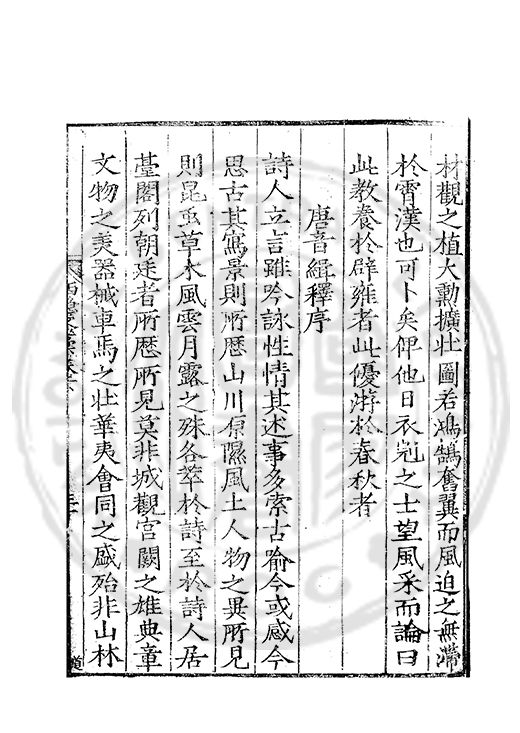 材觀之植大勲擴壮圖若鴻鵠奮翼而風迫之無滯
於霄漢也可卜矣俾他日衣冠之士望風采而論曰
此教養於辟雍者此優游於春秋者
唐音緝釋序
詩人立言雖吟詠性情其述事多索古喻今或感今
思古其寫景則所歴山川原隰風土人物之異所見
則昆虫草木風雲月露之殊各萃於詩至於詩人居
䑓閣列朝廷者所歴所見莫非城觀宮闕之雄典章
文物之美器械車馬之壮華夷會同之盛殆非山林